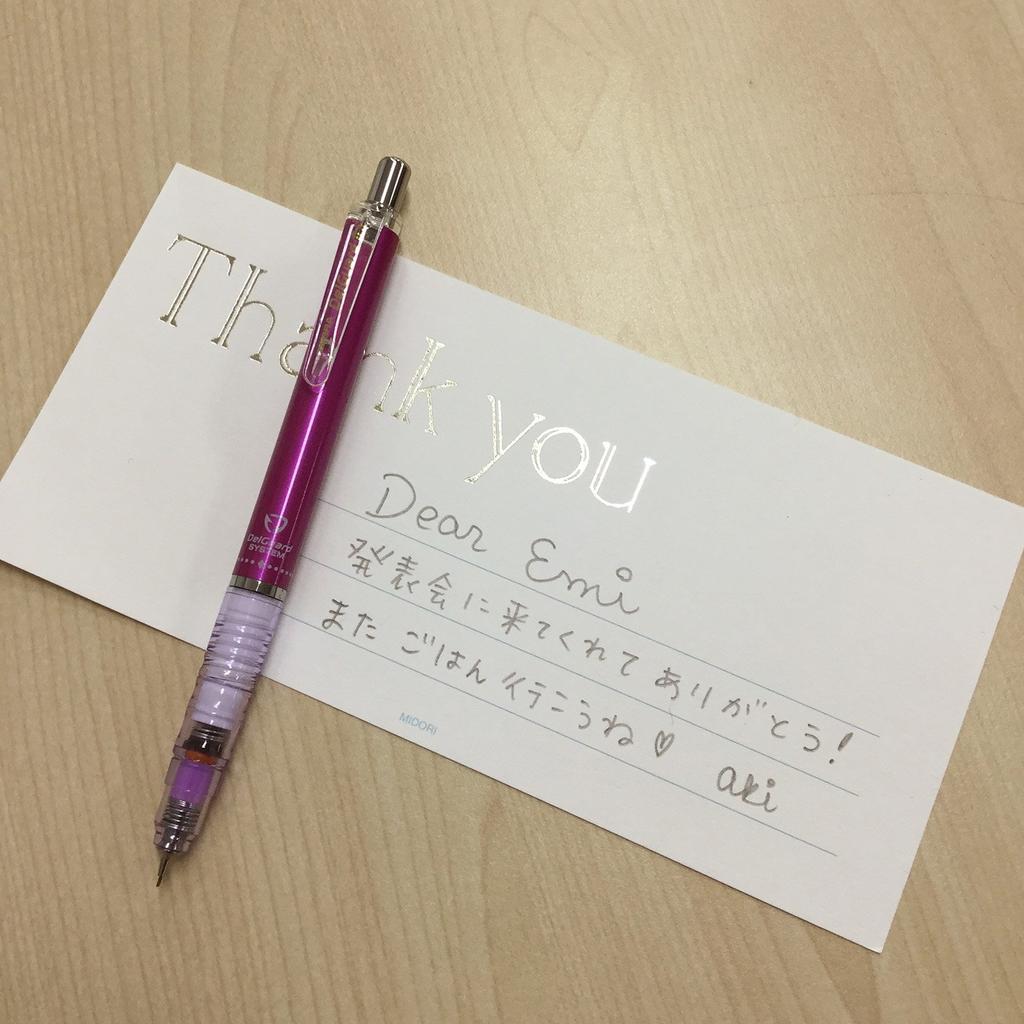 Thank you
Dear Emi
発表会に来てくれてありがとう!
また ごはん行こうね♡
aki
MIDORI
ZEBRA DelGuard
DelGuard
SYSTEM